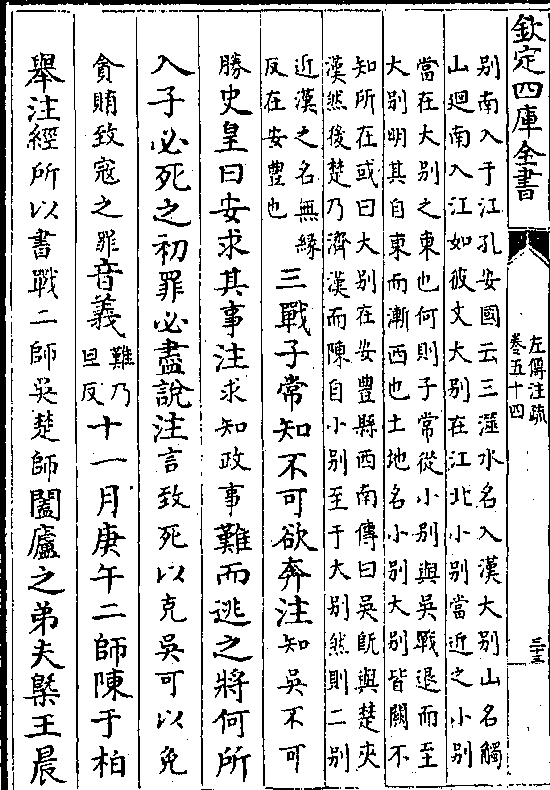 欽定四庫全書
左傳注疏
卷五十四
三十三
别南入于江孔安國云三澨水名入漢大别山名觸
山迴南入江如彼文大别在江北小别當近之小别
當在大别之東也何則子常從小别與吳戰退而至
大别明其自東而漸西也土地名小别大别皆闕不
知所在或曰大别在安豐縣西南傳曰吳既與楚夾
漢然後楚乃濟漢而陳自小别至于大别然則二别
近漢之名無緣
反在安豐也
三戰子常知不可欲奔注知吳不可
勝史皇曰安求其事注求知政事難而逃之將何所
入子必死之初罪必盡說注言致死以克吳可以免
貪賄致寇之罪音義難乃
旦反
十一月庚午二師陳于柏
舉注經所以書戰二師吳楚師闔廬之弟夫槩王晨